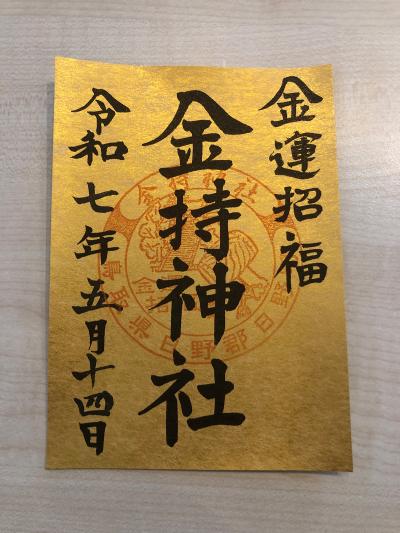 金運招福
金持神社
令和七年五月十四日
金持神社
鳥取県日野郡日野